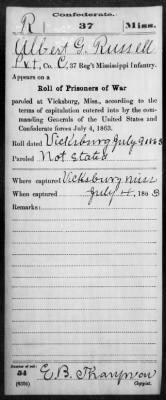 Confederate.
R 37 Miss.
Albert G. Russell
Pvt, Co. C, 37 Reg't Mississippi Infantry.
Appears on a
Roll of Prisoners of War
paroled at Vicksburg, Miss., according to the
terms of capitulation entered into by the com-
manding Generals of the United States and
Confederate forces July 4, 1863.
Roll dated Vicksburg July 9 1863
Paroled Not Stated
Where captured Vicksburg Miss
When captured July 4, 1863
Remarks:
Number of roll:
54
E. B. Thompson
(639b) Copyist.